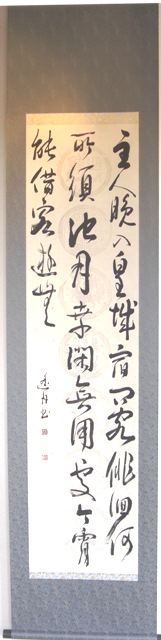 主人晩入皇城宿問客俳徊何
所須池月幸閑無用処今宵
能借客遊無